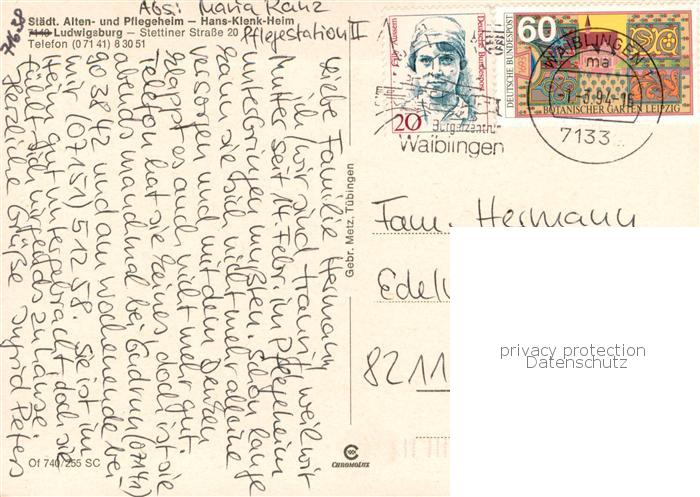 Abs: Maria Kanz
Pflegestation II
71638
Städt. Alten- und Pflegeheim – Hans-Klenk-Heim
7140 Ludwigsburg – Stettiner Straße 20
Telefon (0 71 41) 8 30 51
Liebe Familie Hermann,
ich / wir sind traurig weil wir
Mutter seit 14. Febr. im Pflegeheim
unterbringen mußten. Schon lange
kann sie sich nicht mehr alleine
versorgen und mit dem Denken
klappt es auch nicht mehr gut
Telefon hat sie keines, doch ist sie
abends manchmal bei Gudrun (07141)
90 38 42 und am Wochenende bei
mir (07151) 5 12 58. Sie ist im
Heim gut untergebracht, doch sie
fühlt sich nirgends zuhause
Herzliche Grüße Ingrid Peters
Of 740/255 SC
Gebr. Metz, Tübingen
CHROMOLUX
Deutsche Bundespost
20
DEUTSCHE BUNDESPOST
60
BOTANISCHER GARTEN LEIPZIG
WAIBLINGEN
ma
94-18
7133
Bürgerzentrum
Waiblingen
Fam. Hermann
8211
privacy protection
Datenschutz